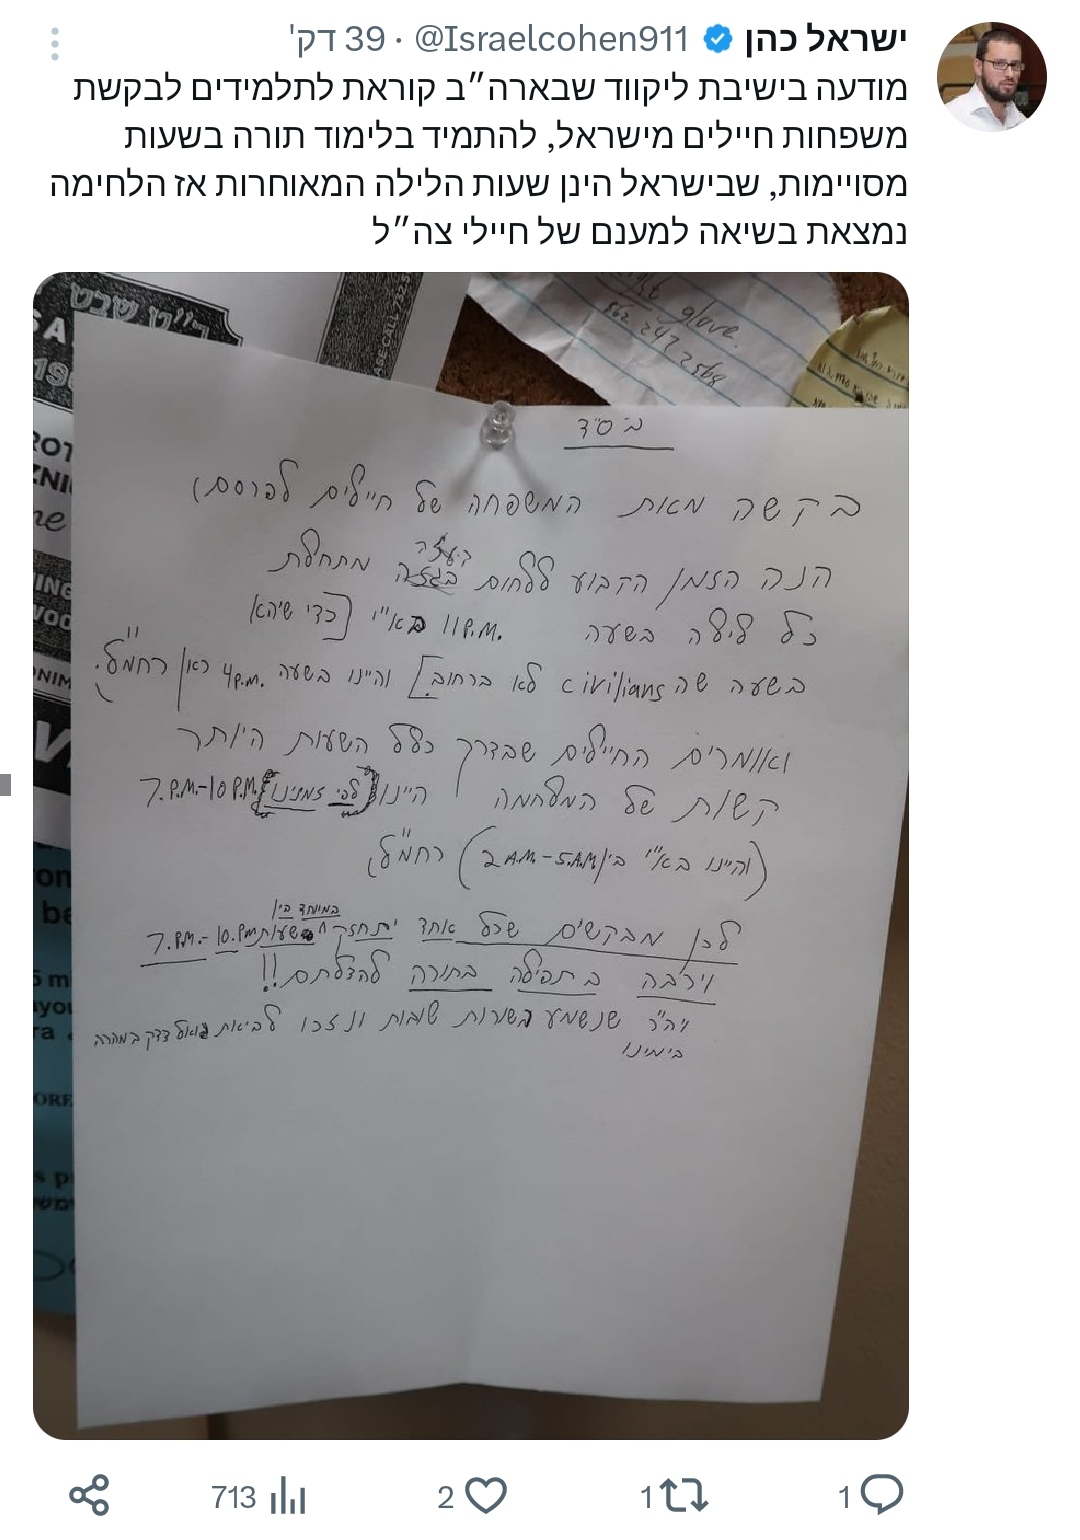 ישראל כהן @Israelcohen911 · 39 דק'
מודעה בישיבת ליקווד שבארה״ב קוראת לתלמידים לבקשת
משפחות חיילים מישראל, להתמיד בלימוד תורה בשעות
מסויימות, שבישראל הינן שעות הלילה המאוחרות אז הלחימה
נמצאת בשיאה למענם של חיילי צה״ל
ד״ט שבט
SA
198
ASE CALL 732
glove.
862 247 2568
ROT
ZNI
ne
ING
WOO
NIM
V
on
be
5 mi
ayou
ra
ORE
s p
בס״ד
בקשה מאת המשפחה של חיילים לפרסם)
הנה הזמן הקבוע ללחום בעזה מתחלת
כל לילה בשעה 11 P.M. בא״י [כדי שיהא
בשעה שה civilians לא ברחוב] והיינו בשעה 4 P.M. כאן רחמ״ל.
ואומרים החיילים שבדרך כלל השעות היותר
קשות של המלחמה היינו [לפי זמנינו] 7.P.M.-10 P.M.
(והיינו בא״י בין 2 A.M.-5.A.M) רחמ״ל,
לכן מבקשים שכל אחד יתחזק במיוחד בין השעות 7.P.M.-10.P.M
וירבה בתפילה בתורה להצלתם!!
ויה״ר שנשמע בשורות טובות ונזכו לביאת גואל צדק במהרה
בימינו
713
2
1
1